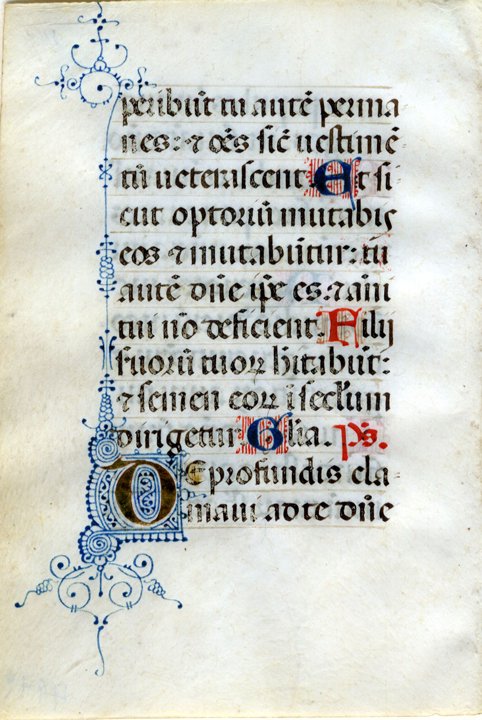 peribūt tu autē perma
nes: ⁊ oēs sic̄ uestimē
tū ueterascent Et si
cut optoriū mutabis
eos ⁊ mutabūtur: tu
autē dn̄e ip̄e es: ⁊ an̄i
tui nō deficient. Filij
suorū tuoꝝ hītabūt:
⁊ semen eoꝝ ī secl̄um
dirigetur Gl̄ia. p̄s.
De profundis cla
maui ad te dn̄e